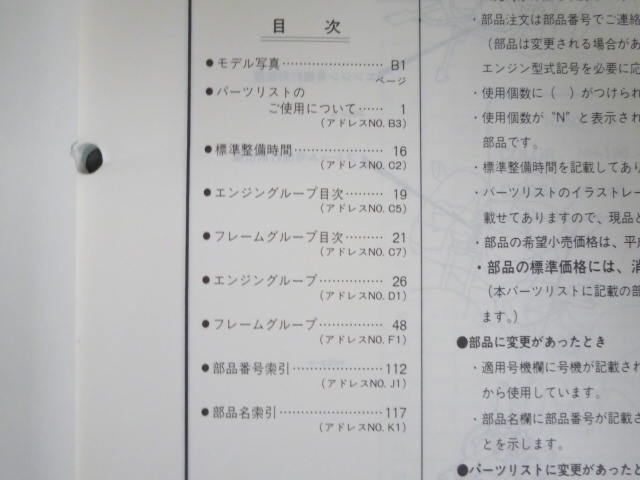 目 次
●モデル写真……………………B1
ページ
●パーツリストの
ご使用について……1
(アドレスNO. B3)
●標準整備時間…………………16
(アドレスNO. C2)
●エンジングループ目次………19
(アドレスNO. C5)
●フレームグループ目次………21
(アドレスNO. C7)
●エンジングループ……………26
(アドレスNO. D1)
●フレームグループ……………48
(アドレスNO. F1)
●部品番号索引…………………112
(アドレスNO. J1)
●部品名索引……………………117
(アドレスNO. K1)
・部品注文は部品番号でご連絡
(部品は変更される場合があ
エンジン型式記号を必要に応
・使用個数に( )がつけられ
・使用個数が“N”と表示され
部品です。
・標準整備時間を記載してあり
・パーツリストのイラストレー
載せてありますので、現品と
・部品の希望小売価格は、平成
・部品の標準価格には、消
(本パーツリストに記載の部
ます。)
●部品に変更があったとき
・適用号機欄に号機が記載され
から使用しています。
・部品名欄に部品番号が記載さ
とを示します。
●パーツリストに変更があったと